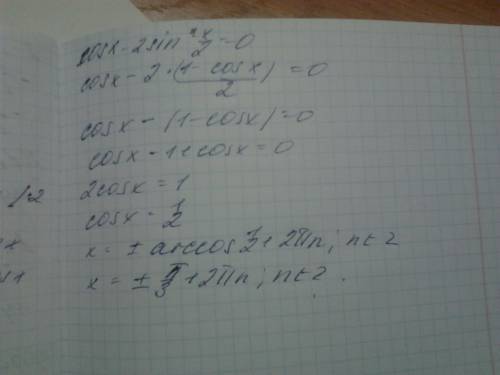 cosx - 2sin² x/2 = 0
cosx - 2 · (1 - cosx)/2 = 0
cosx - (1 - cosx) = 0
cosx - 1 + cosx = 0
2cosx = 1
cosx = 1/2
x = ± arccos 1/2 + 2πn; n ∈ Z
x = ± π/3 + 2πn; n ∈ Z.